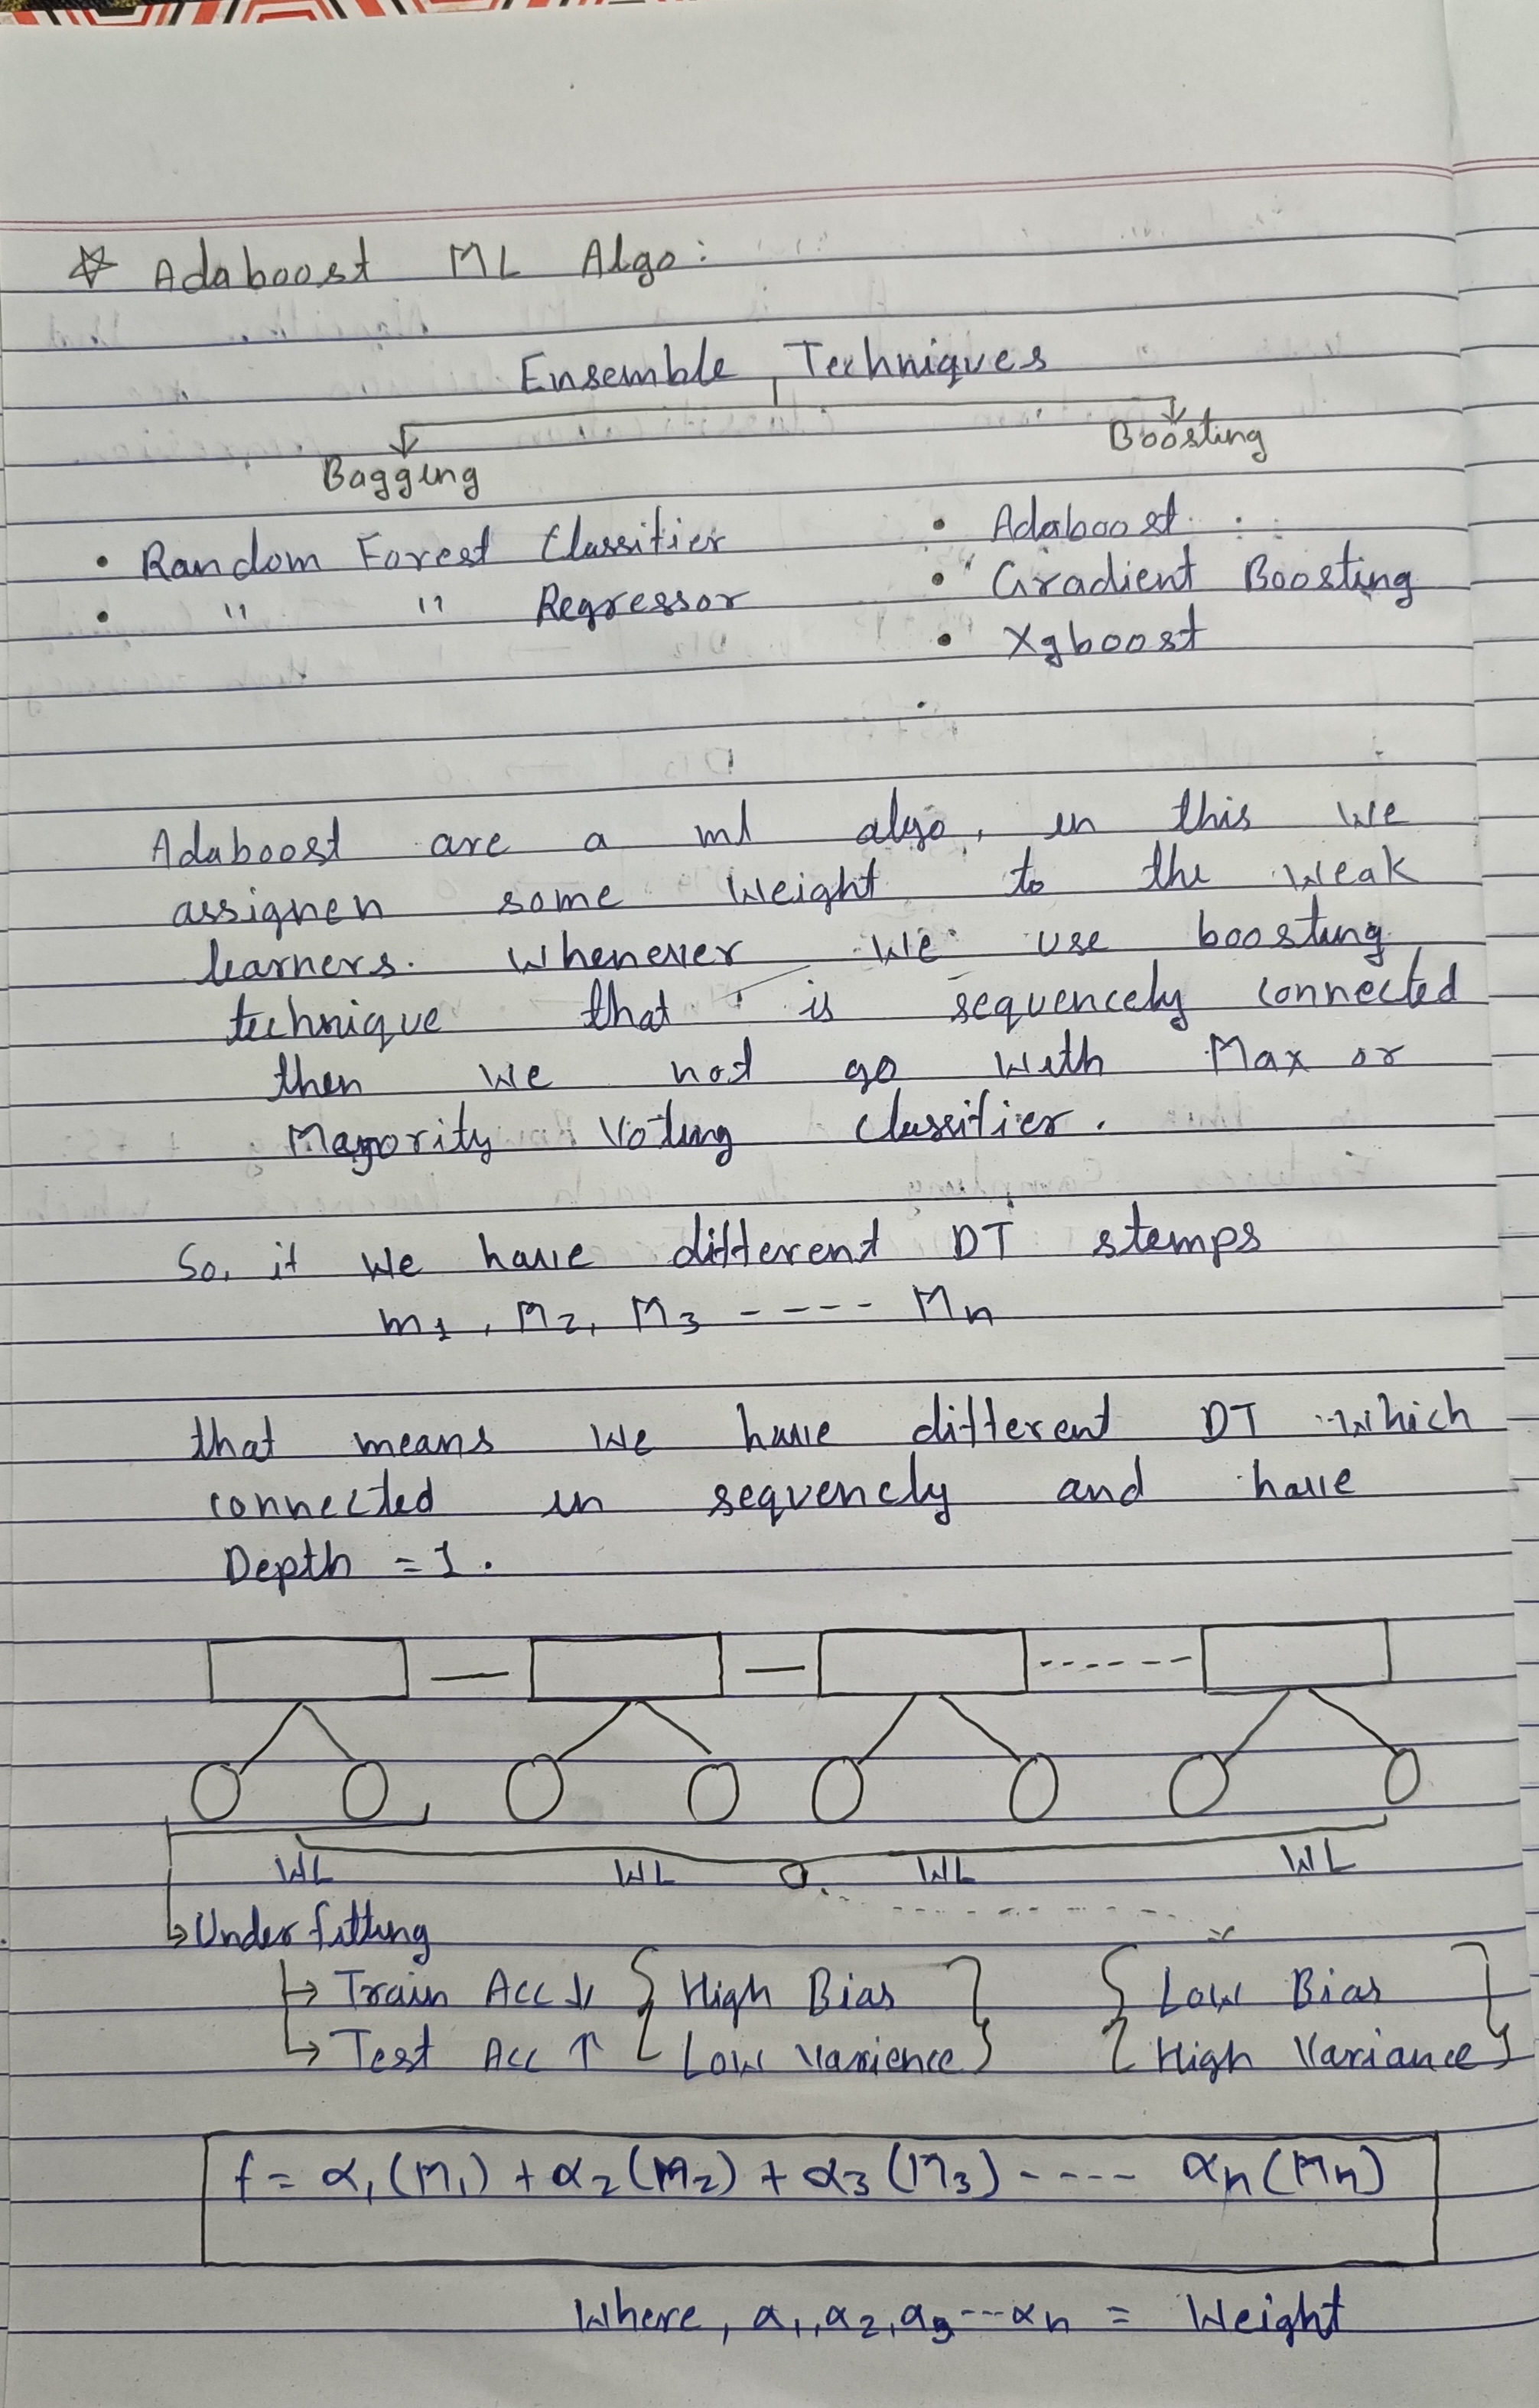 ☆ Adaboost ML Algo:
Ensemble Techniques
Bagging
Boosting
• Random Forest Classifier
• " " Regressor
• Adaboost
• Gradient Boosting
• Xgboost
Adaboost are a ml algo, in this we
assignen some weight to the weak
learners. Whenever we use boosting
technique that is sequencely connected
then we not go with Max or
Majority Voting classifier.
So, if we have different DT stemps
m1, M2, M3 ----- Mn
that means we have different DT which
connected in sequencly and have
Depth = 1.
WL WL WL WL
↳ Under fitting
↳ Train Acc ↓ { High Bias } { Low Bias }
↳ Test Acc ↑ { Low Varience } { High Variance }
f = α1(M1) + α2(M2) + α3(M3) ---- αn(Mn)
Where, α1, α2, α3 --- αn = Weight